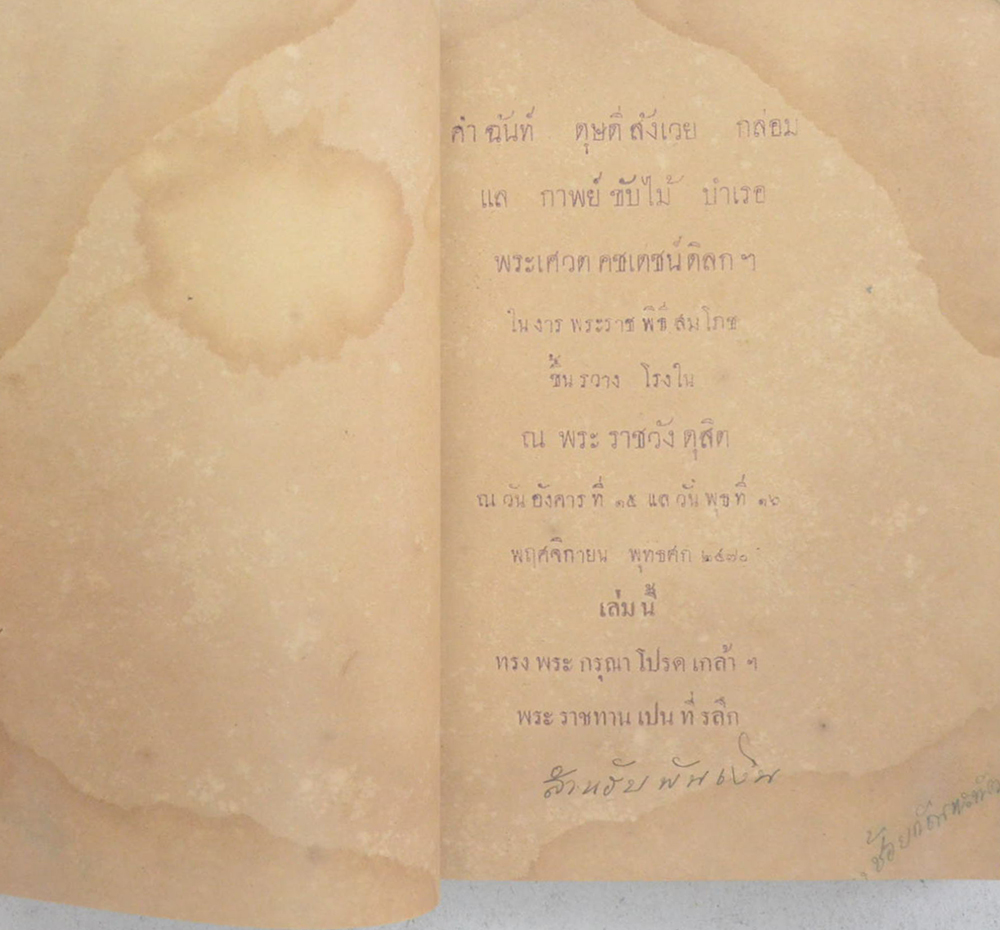 คำ ฉันท์ ดุษดี สังเวย กล่อม
แล กาพย์ ขับไม้ บำเรอ
พระเศวต คชเดชน์ดิลก ฯ
ในงาร พระราช พิธี สมโภช
ขึ้น รวาง โรงใน
ณ พระ ราชวัง ดุสิต
ณ วัน อังคาร ที่ ๑๕ แล วัน พุธ ที่ ๑๖
พฤศจิกายน พุทธศก ๒๔๗๐
เล่ม นี้
ทรง พระ กรุณา โปรด เกล้า ฯ
พระ ราชทาน เปน ที่ รลึก
สำหรับ พัน เงิน